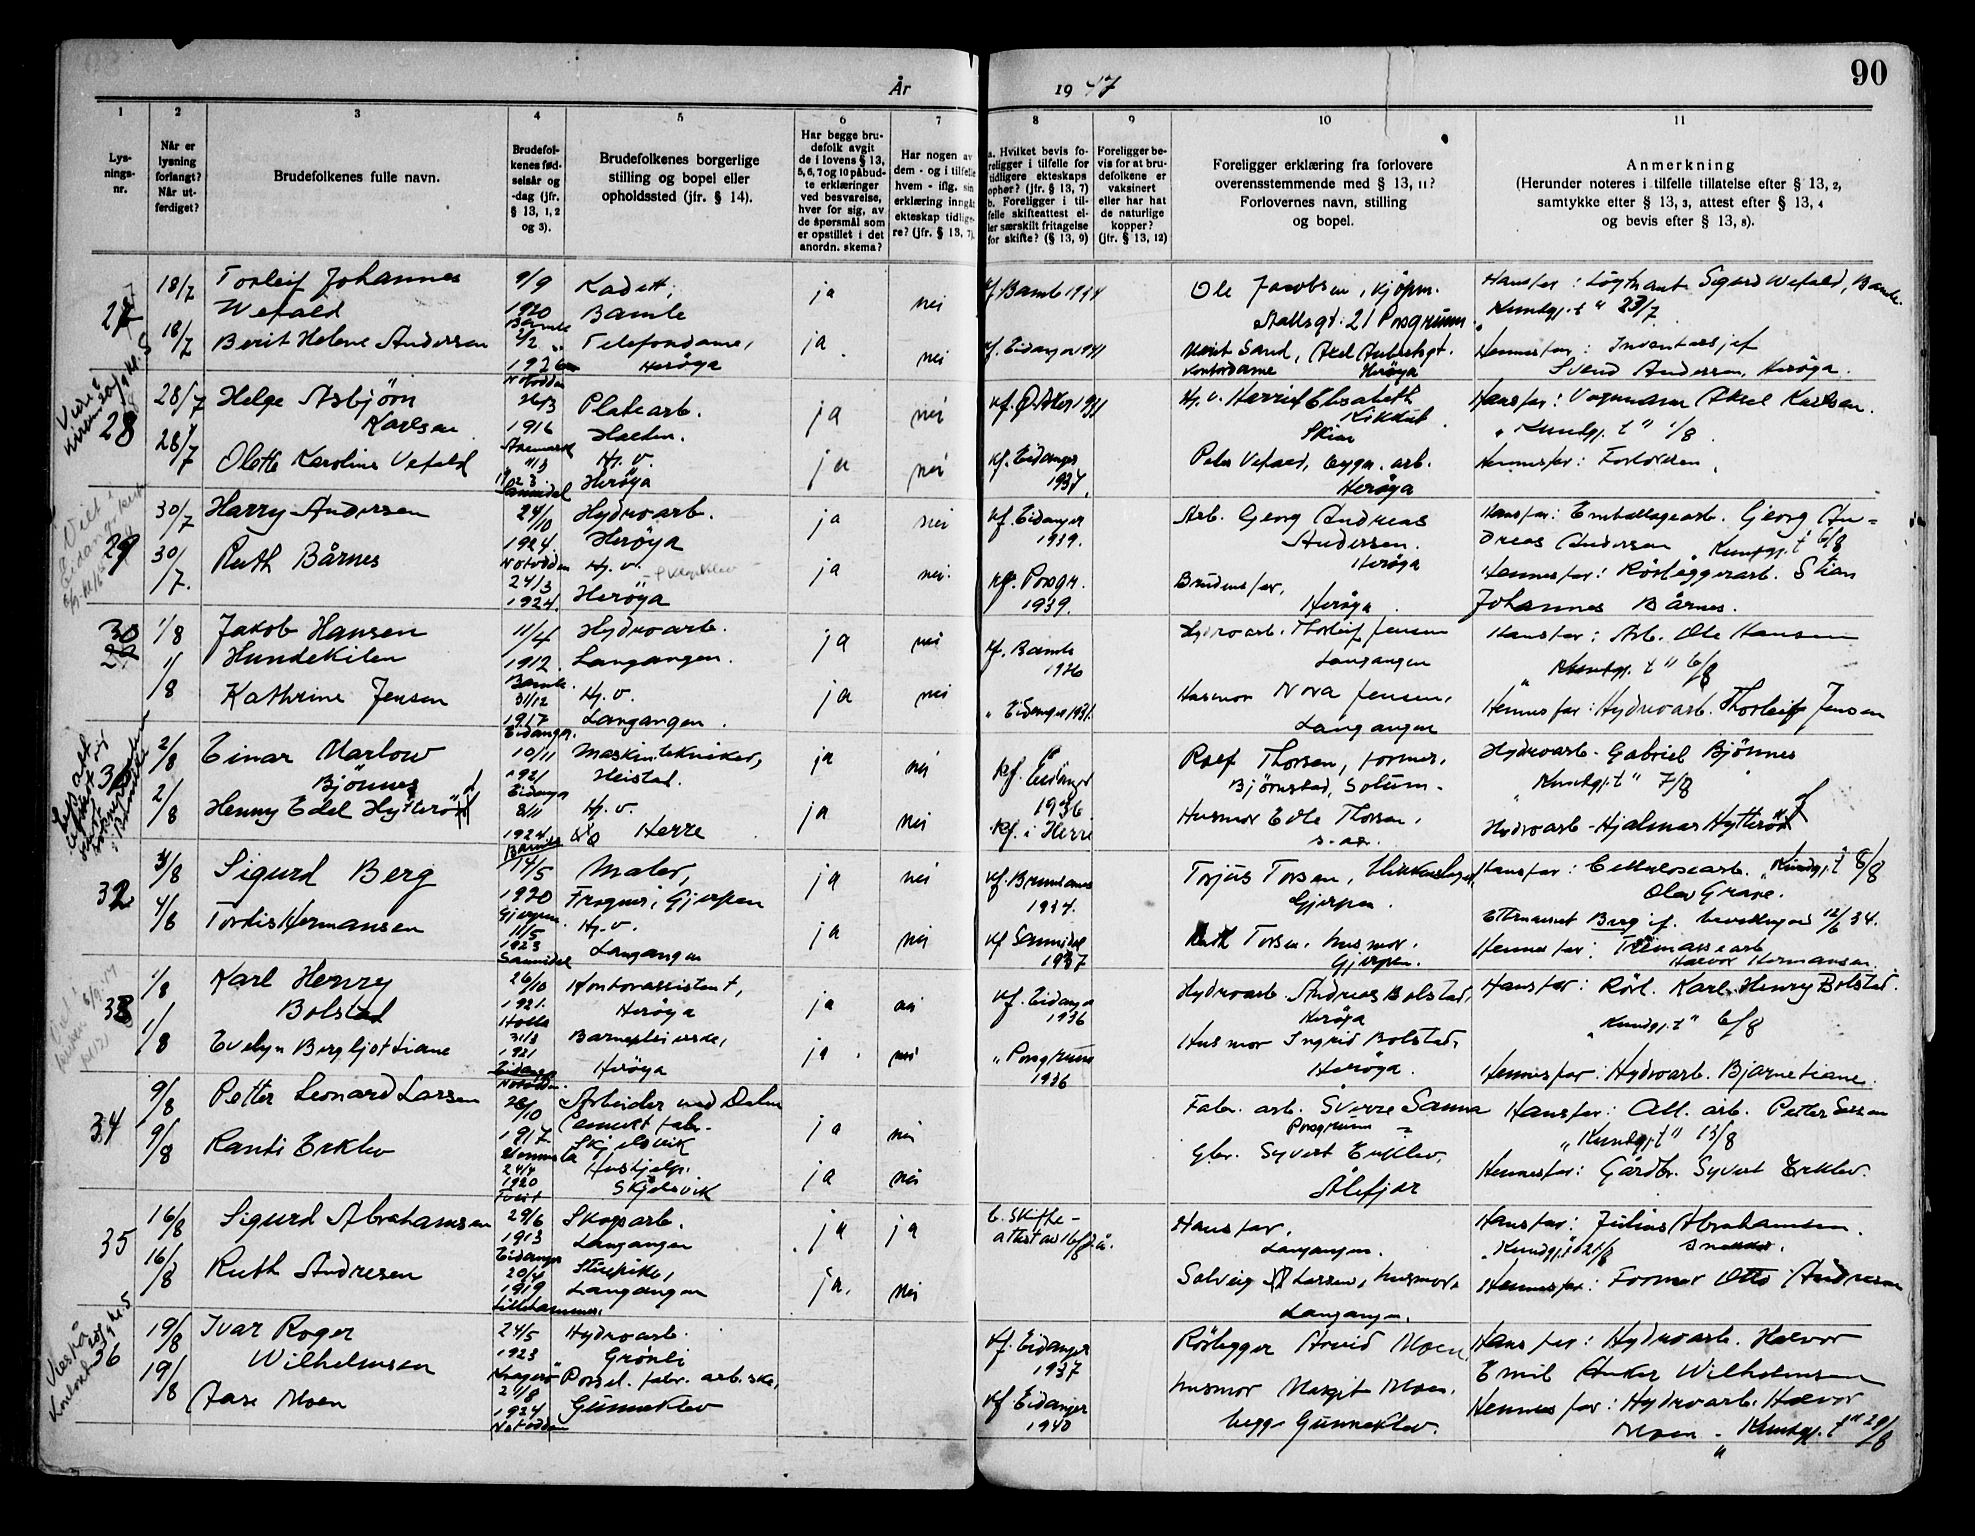 90
År 1947
1 2 3 4 5 6 7 8 9 10 11
Lysningsnr.
Når er lysning forlangt? Når utferdiget?
Brudefolkenes fulle navn.
Brudefolkenes fødselsår og -dag (jfr. § 13, 1, 2 og 3).
Brudefolkenes borgerlige stilling og bopel eller opholdssted (jfr. § 14).
Har begge brudefolk avgit de i lovens § 13, 5, 6, 7 og 10 påbudte erklæringer ved besvarelse, hver for sig, av de spørsmål som er opstillet i det anordn. skema?
Har nogen av dem - og i tilfelle hvem - iflg. sin erklæring inngåt ekteskap tidligere? (jfr. § 13, 7).
a. Hvilket bevis foreligger i tilfelle for tidligere ekteskaps ophør? (jfr. § 13, 7)
b. Foreligger i tilfelle skifteattest eller særskilt fritagelse for skifte? (§ 13, 9)
Foreligger bevis for at brudefolkene er vaksinert eller har hat de naturlige kopper? (jfr. § 13, 12)
Foreligger erklæring fra forlovere overensstemmende med § 13, 11? Forlovernes navn, stilling og bopel.
Anmerkning
(Herunder noteres i tilfelle tillatelse efter § 13, 2, samtykke efter § 13, 3, attest efter § 13, 4 og bevis efter § 13, 8).
27 18/7 Torleif Johannes Wefald 9/9 1920 Bamle Kadett, Bamle ja nei kf. Bamle 1934 Ole Jacobsen, kjøpm. Hansfar: Sigurd Wefald, Bamle.
Storgt. 21 Porsgrunn. "Kundgj.t" 23/7
18/7 Berit Helene Andersen 2/2 1926 Notodden Telefondame, Herøya ja nei kf. Eidanger 1941 Marit Sand, Kontordame Herøya Hennesfar:
Svend Andersen, Herøya.
28 28/7 Helge Asbjörn Karlsen 26/3 1916 Aremark Platearb. Halden. ja nei Hj.v. Harriet Elisabeth Skien Hansfar: Aksel Karlsen.
"Kundgj.t" 1/8
28/7 Olette Karoline Vefald 11/3 1923 Sannidal Hj.v. Herøya ja nei kf. Eidanger 1937. Peter Vefald, bygn.arb. Herøya Hennesfar: Forloveren.
29 30/7 Harry Andersen 24/10 1924. Notodden Hydroarb. Herøya ja nei kf. Eidanger 1939. Arb. Georg Andreas Andersen. Herøya Hansfar: Emballagearb. Georg Andreas Andersen "Kundgj.t" 6/8
30/7. Ruth Bårnes 24/3 1924. Hj.v. Herøya ja nei. kf. Porsgr. 1939. Brudens far, Herøya. Hennesfar: Rörleggerarb. Stian Johannes Bårnes.
30 1/8 Jakob Hansen Hundekilen 11/4 1912. Bamle. Hydroarb. Langangen. ja nei kf. Bamle 1926 Hydroarb. Thorleif Jensen Langangen Hansfar: Arb. Ole Hansen
"Kundgj.t" 6/8
1/8 Kathrine Jensen 31/12 1917 Eidanger. Hj.v. Langangen. ja nei " Eidanger 1931. Husmor Nora Jensen, Langangen Hennesfar: Hydroarb. Thorleif Jensen
31 2/8 Einar Marlow Bjönnes 10/11 1921 Eidanger Maskintekniker, Heistad. ja nei kf. Eidanger 1936. Rolf Thorsen, former, Björnstad, Solum. Hydroarb. Gabriel Bjönnes
"Kundgj.t" 7/8
2/8 Henny Edel Hytteröd 8/11 1924. Bamle Hj.v. Herre ja nei kf. i Herre Husmor Edle Thorsen, s.a. Hydroarb. Hjalmar Hytteröd
32 4/8 Sigurd Berg 14/5 1920 Gjerpen. Maler, Frogner, Gjerpen ja nei 1934. Torjus Torsen, Gjerpen. Hansfar: Cellulosearb. "Kundgj.t" 8/8
Olav Grave.
Efternavnet Berg bevilling av 12/6 34.
4/8 Tordis Hermansen 11/5 1923 Sannidal Hj.v. Langangen ja nei kf. Sannidal 1937 Ruth Torsen, husmor. Gjerpen. Hennesfar: Tremassearb. Halvor Hermansen.
33 1/8 Karl Henry Bolstad 26/10 1921. Holla Kontorassistent, Herøya ja nei kf. Eidanger 1936 Hydroarb. Andreas Bolstad, Herøya Hansfar: Rörl. Karl Henry Bolstad.
"Kundgj.t" 6/8
1/8 Evelyn Bergljot Liane 31/3 1921 Notodden. Barnepleierske, Herøya ja nei " Porsgrunn 1936 Husmor Ingrid Bolstad, Herøya. Hennesfar: Hydroarb. Bjarne Liane.
34 9/8 Petter Leonard Larsen 28/10 1917 Arbeider ved Dalen Cement fabr. Skjelsvik ja nei Fabr. arb. Sverre Sanna Porsgrunn Hansfar: All. arb. Petter Larsen
"Kundgj.t" 13/8
9/8 Randi Erklev 24/4 1920 Tveit Hushjelp. Skjelsvik ja nei Gbr. Syvert Erklev, Ålefjær Hennesfar: Gårdbr. Syvert Erklev.
35 16/8 Sigurd Abrahamsen 29/6 1913 Eidanger Skogsarb. Langangen ja ja b. Skifteattest av 16/8 d.å. Hansfar, Langangen. Hansfar: Julius Abrahamsen. snekker.
"Kundgj.t" 21/8
16/8 Ruth Andresen 20/4 1919 Lillehammer. Langangen ja. nei Solveig Larsen, husmor Langangen. Hennesfar: Former Otto Andresen
36 19/8 Ivar Roger Wilhelmsen 24/5 1923 Kragerø Hydroarb. Grønli kf. Eidanger 1937 Rörlegger Arvid Moen, Hansfar: Hydroarb. Halvor
Emil Anker Wilhelmsen
19/8 Aase Moen 21/8 1924 Notodden Porsel. fabr. arb.ske, Gunneklev kf. Eidanger 1940 husmor Margit Moen. begge Gunneklev. Hennesfar: Hydroarb. Halvor
Moen - "Kundgj.t" 29/8